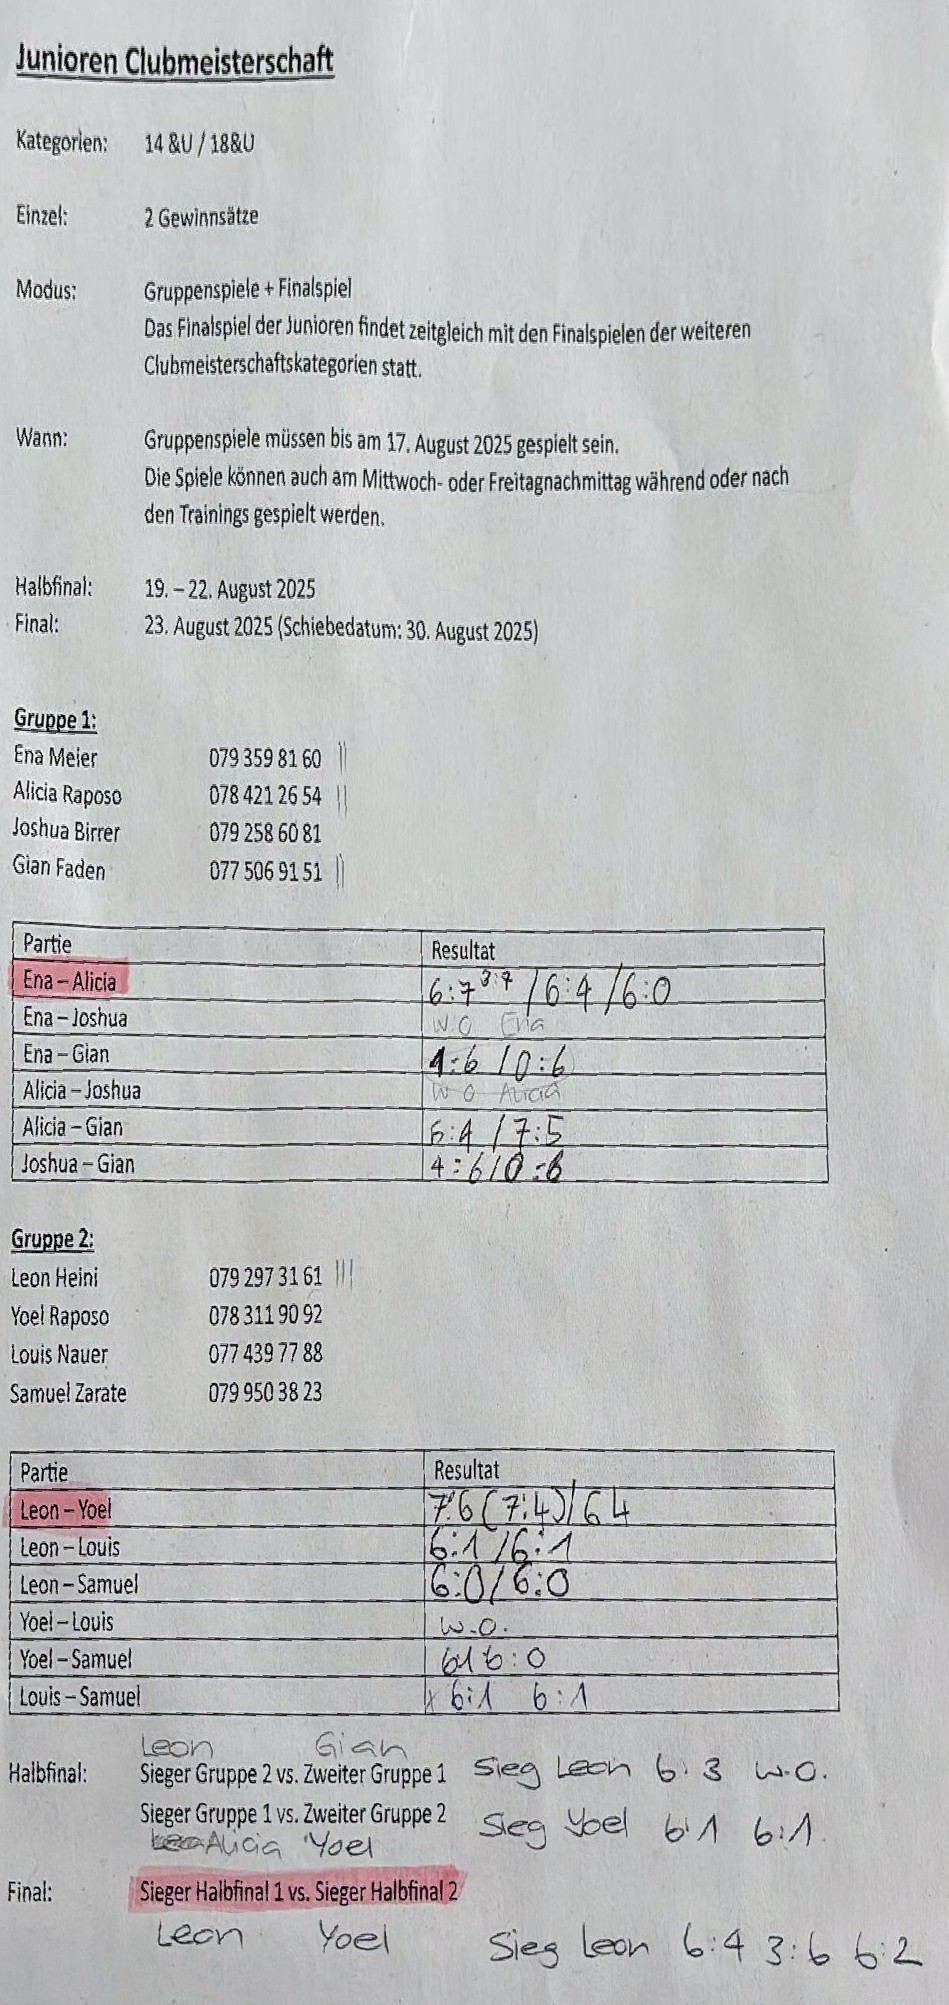 Junioren Clubmeisterschaft
Kategorien: 14 &U / 18&U
Einzel: 2 Gewinnsätze
Modus: Gruppenspiele + Finalspiel
Das Finalspiel der Junioren findet zeitgleich mit den Finalspielen der weiteren
Clubmeisterschaftskategorien statt.
Wann: Gruppenspiele müssen bis am 17. August 2025 gespielt sein.
Die Spiele können auch am Mittwoch- oder Freitagnachmittag während oder nach
den Trainings gespielt werden.
Halbfinal: 19. – 22. August 2025
Final: 23. August 2025 (Schiebedatum: 30. August 2025)
Gruppe 1:
Ena Meier 079 359 81 60 ||
Alicia Raposo 078 421 26 54 ||
Joshua Birrer 079 258 60 81
Gian Faden 077 506 91 51 ||
Partie Resultat
Ena – Alicia 6:7 3:7 / 6:4 / 6:0
Ena – Joshua W.O Ena
Ena – Gian 1:6 / 0:6
Alicia – Joshua W O Alicia
Alicia – Gian 6:4 / 7:5
Joshua – Gian 4:6 / 0:6
Gruppe 2:
Leon Heini 079 297 31 61 |||
Yoel Raposo 078 311 90 92
Louis Nauer 077 439 77 88
Samuel Zarate 079 950 38 23
Partie Resultat
Leon – Yoel 7:6 (7:4) / 6 4
Leon – Louis 6:1 / 6:1
Leon – Samuel 6:0 / 6:0
Yoel – Louis w.o.
Yoel – Samuel 61 6:0
Louis – Samuel x 6:1 6:1
Leon Gian
Halbfinal: Sieger Gruppe 2 vs. Zweiter Gruppe 1 Sieg Leon 6:3 w.o.
Sieger Gruppe 1 vs. Zweiter Gruppe 2 Sieg Yoel 6:1 6:1.
Alicia Yoel
Final: Sieger Halbfinal 1 vs. Sieger Halbfinal 2
Leon Yoel Sieg Leon 6:4 3:6 6:2